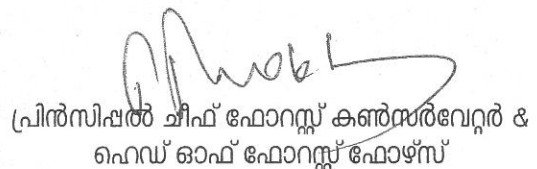 പ്രിൻസിപ്പൽ ചീഫ് ഫോറസ്റ്റ് കൺസർവേറ്റർ &
ഹെഡ് ഓഫ് ഫോറസ്റ്റ് ഫോഴ്സ്